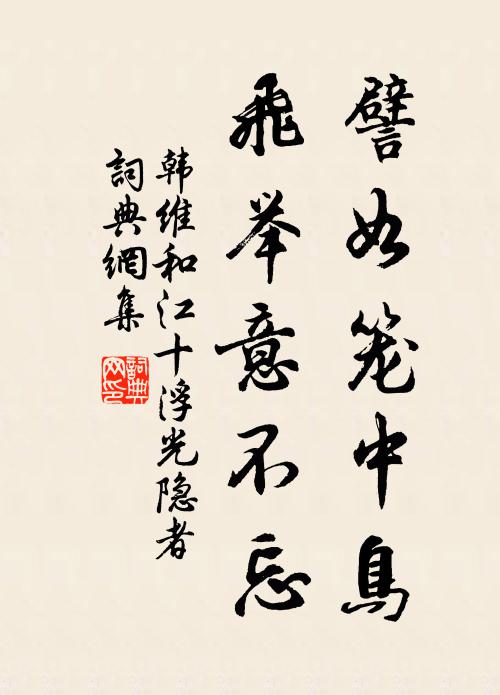 譬如笼中鳥
飛举意不忘
韩维和江十浮光隐者
詞典網集
詞典网印